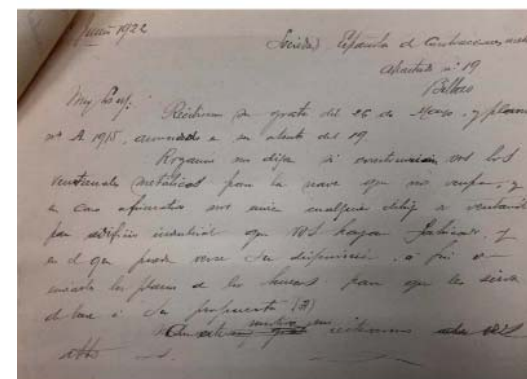 Junio 1922
Sociedad Española de Construcciones
Apartado nº 19
Bilbao
Muy Sres.
Recibimos su grata del 26 de Marzo, y plano
nº A 1915, anunciado en su atenta del 19.
Rogamos nos digan si construirían vds los
ventanales metálicos para la nave que nos ocupa, y
en caso afirmativo nos envíe cualquier dibujo de ventanal
para edificio industrial que Vds hayan fabricado, y
en el que pueda verse su disposición, o
enviarle los planos de los huecos para que les sirva
de base a su propuesta (2)
reiteramos